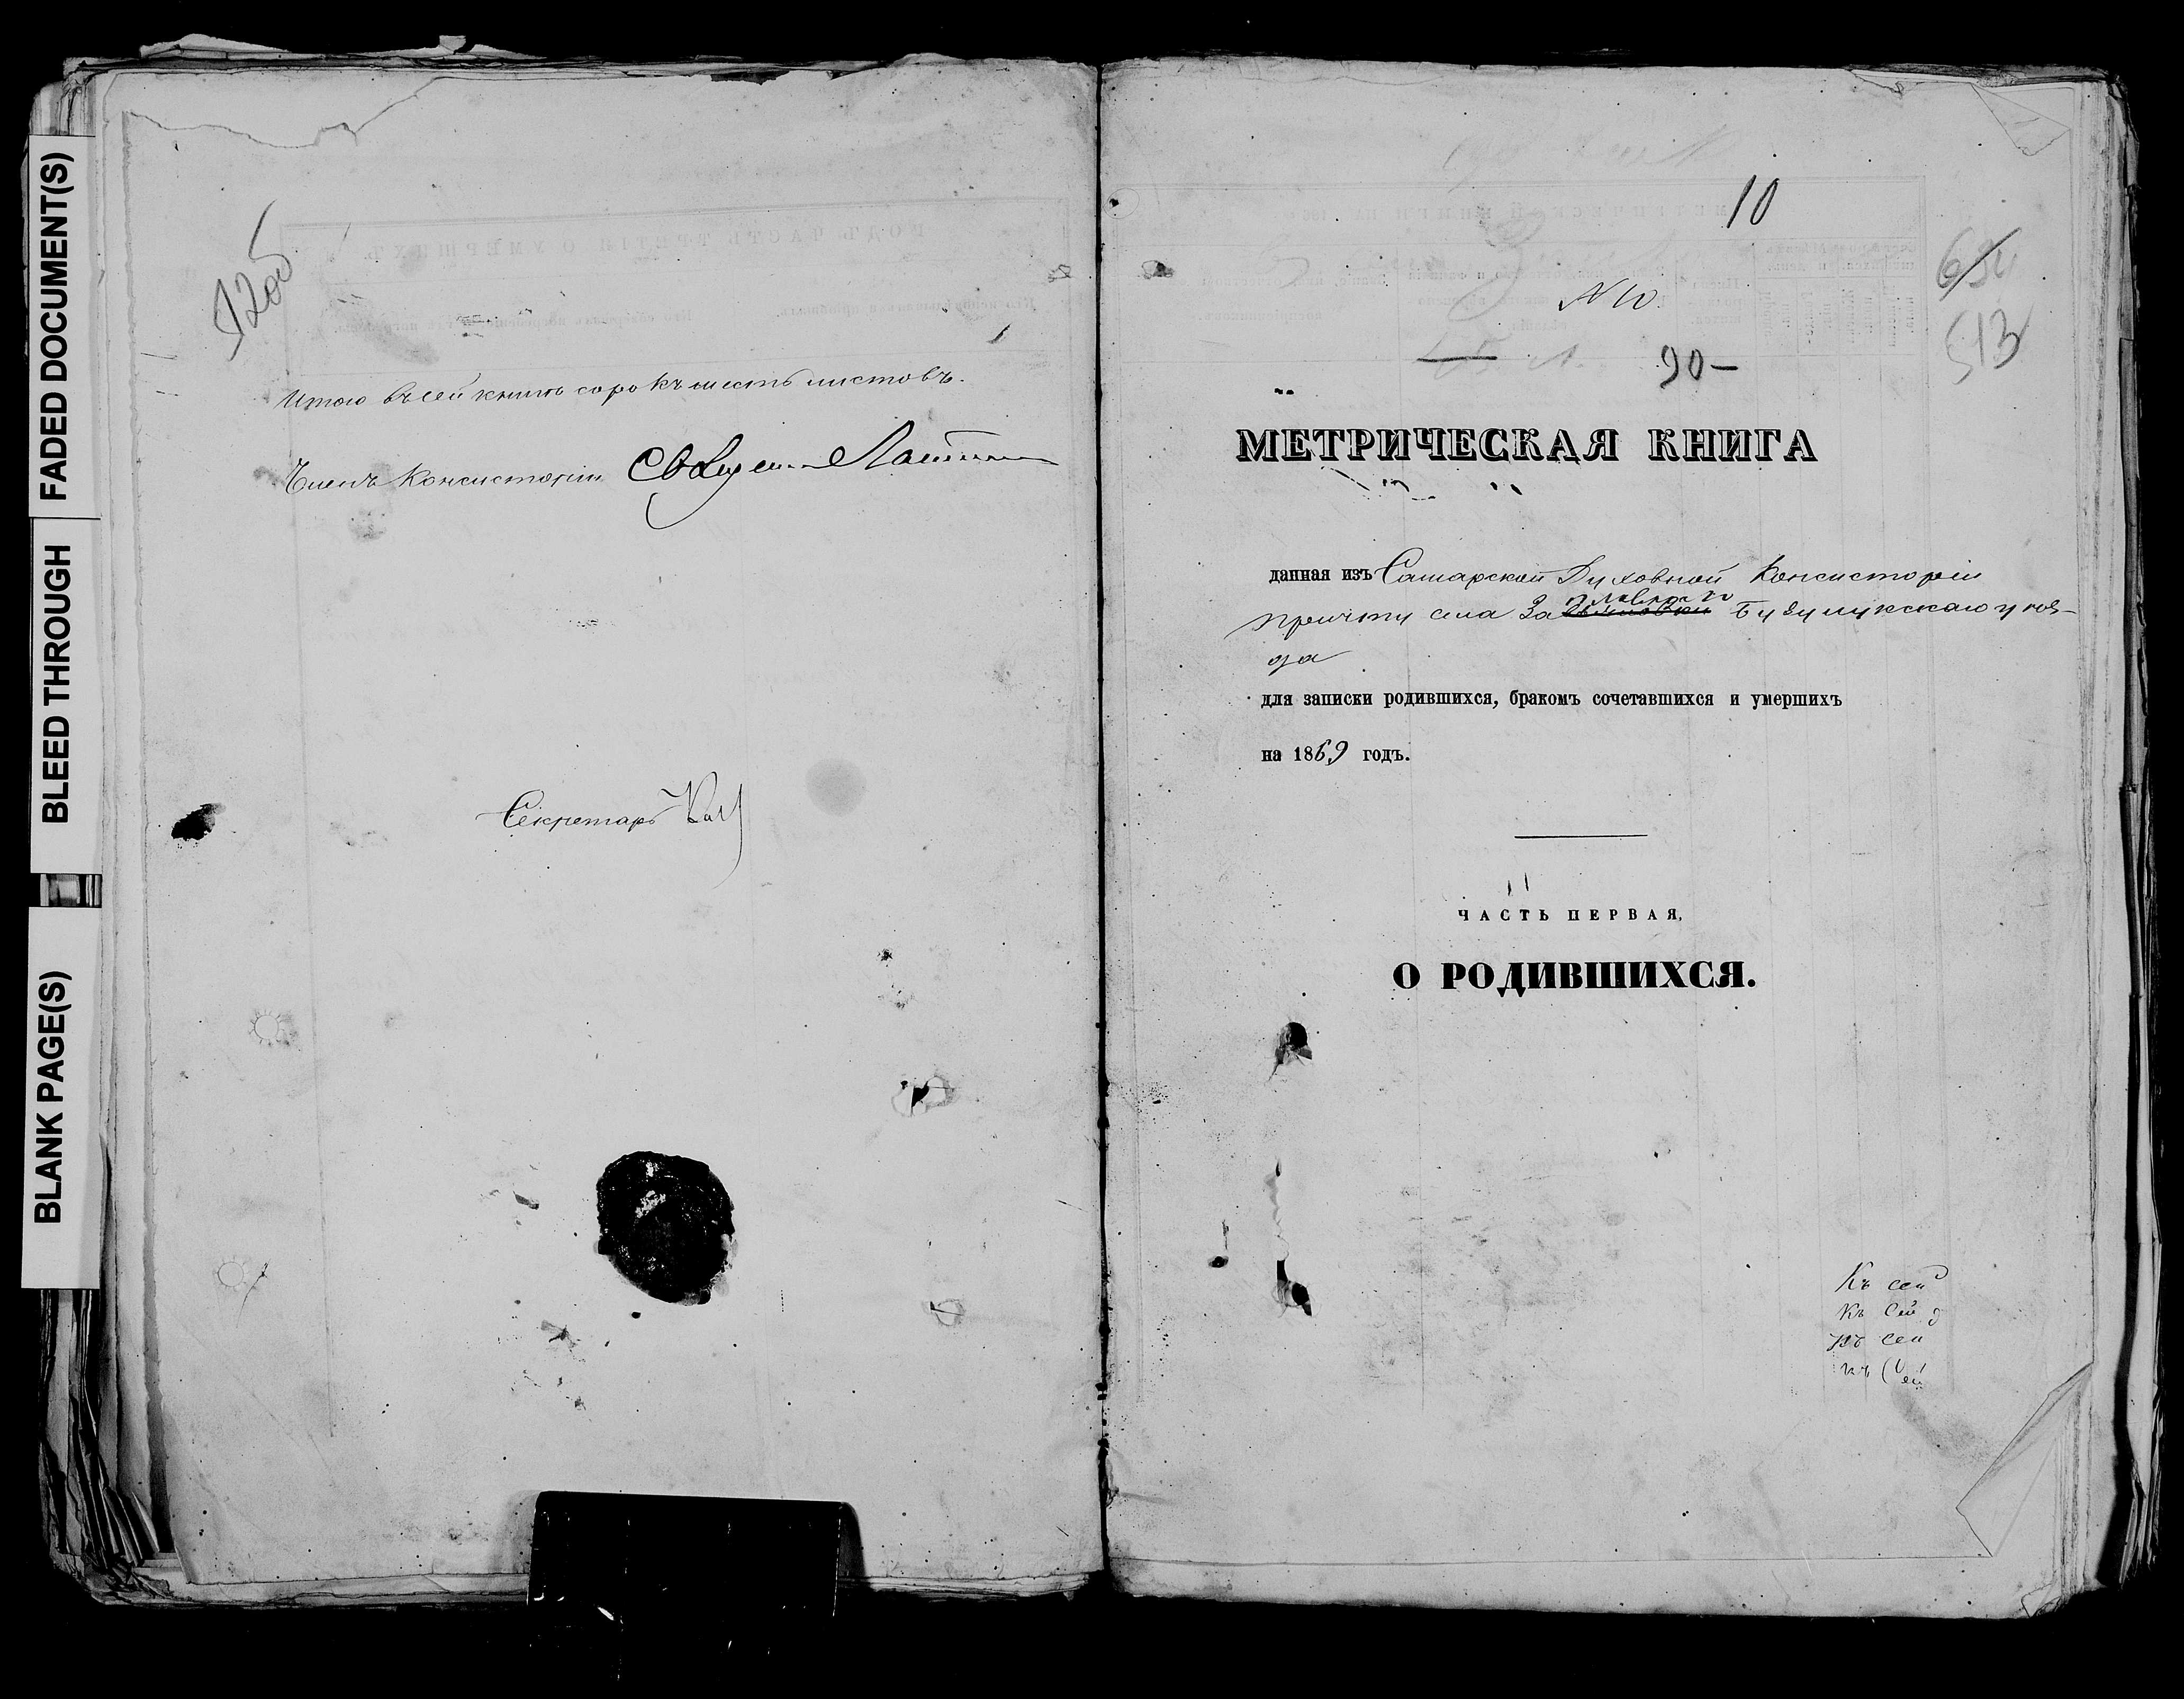 FADED DOCUMENT(S)
BLEED THROUGH
BLANK PAGE(S)
Итого въ сей книгѣ сорокъ шесть листовъ.
Членъ Консисторіи
Секретарь
10
N 10.
513
90-
МЕТРИЧЕСКАЯ КНИГА
данная изъ Самарской Духовной Консисторіи
причту села Бузулукскаго уѣз-
да
для записки родившихся, бракомъ сочетавшихся и умершихъ
на 1869 годъ.
ЧАСТЬ ПЕРВАЯ,
О РОДИВШИХСЯ.
Къ сей
Къ Сей
Къ сей
къ Сей